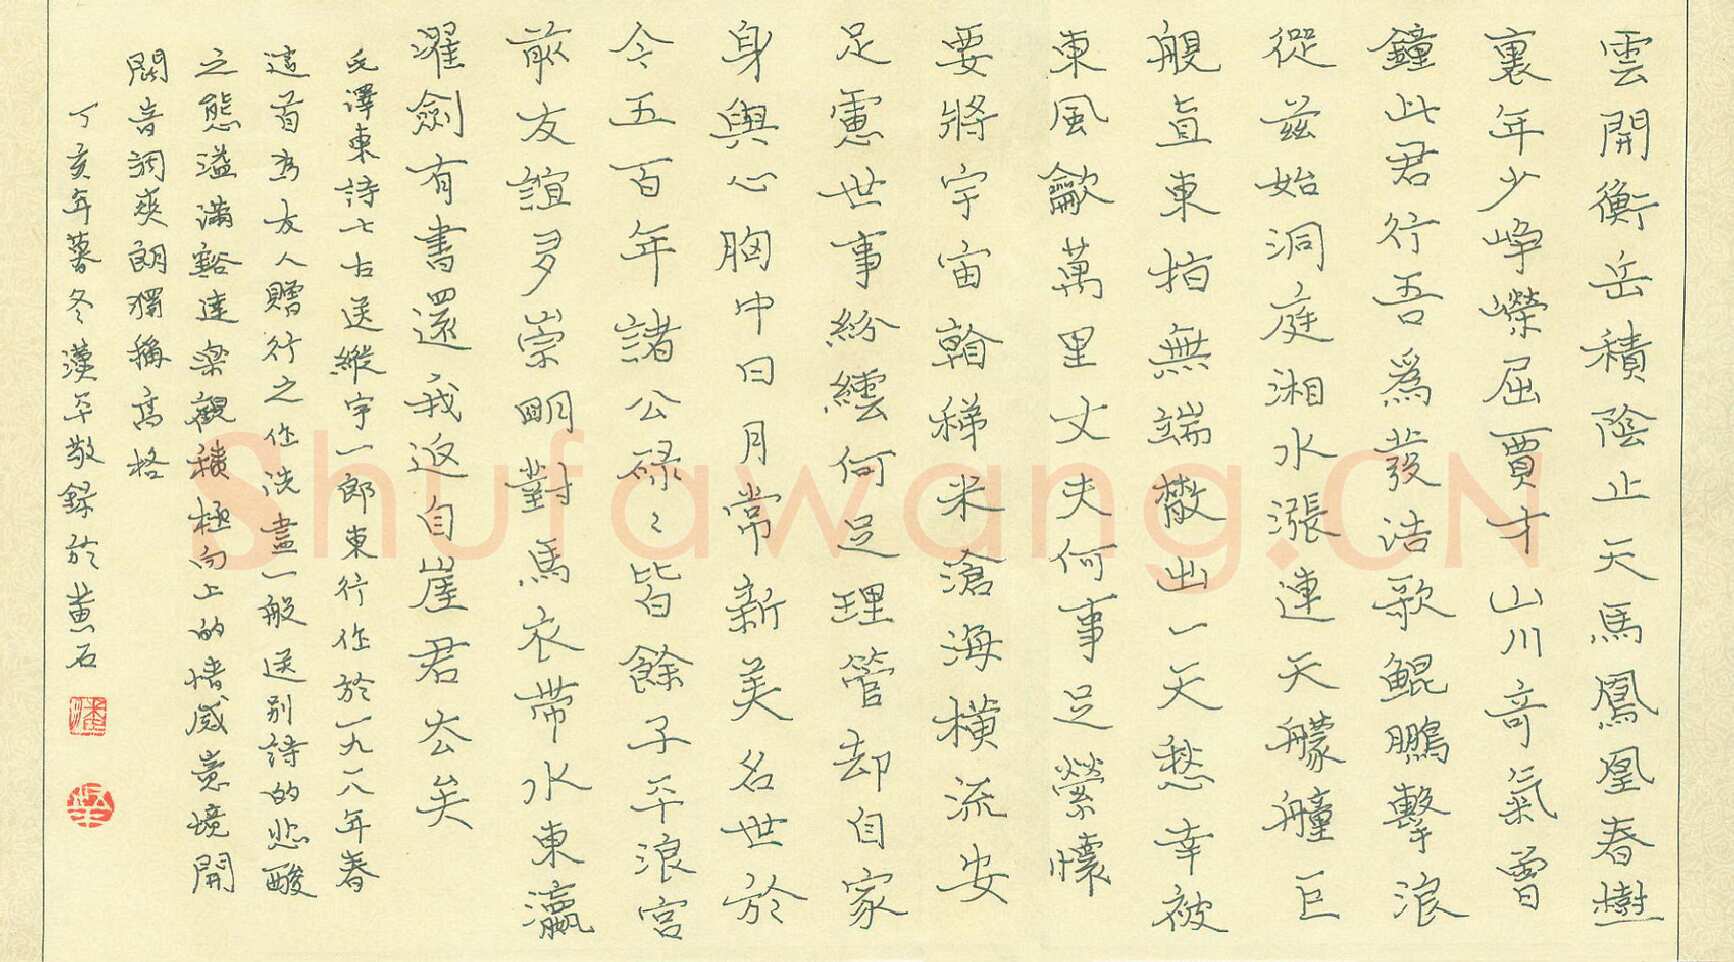 雲開衡岳積陰止天馬鳳凰春樹
裏年少崢嶸屈賈才山川奇氣曾
鐘此君行吾爲發浩歌鯤鵬擊浪
從茲始洞庭湘水漲連天艨艟巨
艦直東指無端散出一天愁幸被
東風歙萬里丈夫何事足縈懷
要將宇宙看稊米滄海橫流安
足慮世事紛纭何足理管却自家
身與心胸中日月常新美名世於
今五百年諸公碌〻皆餘子平浪宮
前友誼多崇明對馬衣帶水東瀛
濯劍有書還我返自崖君去矣
毛澤東詩七古送縱宇一郎東行作於一九一八年春
這首爲友人贈行之作洗盡一般送別詩的悲酸
之態溢滿豁達樂觀積極向上的情感意境開
闊音調爽朗獨稱高格
丁亥年暮冬漢平敬録於黄石
Shufawang.CN